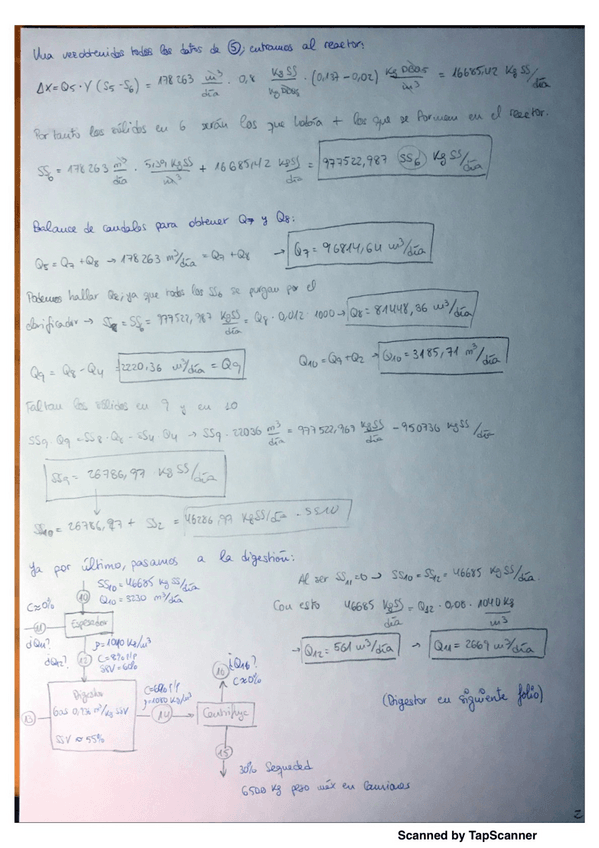 Una vez obtenidos todos los datos de ⑤, entramos al reactor:
ΔX = Q5 · Y (S5 - S6) = 178263 m³/día · 0,8 kg SS/kg DBO5 · (0,137 - 0,02) kg DBO5/m³ = 16685,42 kg SS/día
Por tanto los sólidos en 6 serán los que había + los que se formen en el reactor.
SS6 = 178263 m³/día · 5,39 kg SS/m³ + 16685,42 kg SS/día = 977522,987 SS6 kg SS/día
Balance de caudales para obtener Q7 y Q8:
Q5 = Q7 + Q8 → 178263 m³/día = Q7 + Q8 → Q7 = 96814,64 m³/día
Podemos hallar Q8, ya que todos los SS6 se purgan por el
clarificador → SS8 = SS6 = 977522,987 kg SS/día = Q8 · 0,012 · 1000 → Q8 = 81448,36 m³/día
Q9 = Q8 - Q4 = 2220,36 m³/día = Q9 Q10 = Q9 + Q2 → Q10 = 3185,71 m³/día
Faltan los sólidos en 9 y en 10
SS9 · Q9 = SS8 · Q8 - SS4 · Q4 → SS9 · 22036 m³/día = 977522,969 kg SS/día - 950736 kg SS/día
SS9 = 26786,97 kg SS/día
SS10 = 26786,97 + SS2 = 46286,97 kg SS/día = SS10
Ya por último, pasamos a la digestión:
SS10 = 46685 kg SS/día
Q10 = 3230 m³/día
Al ser SS11 = 0 → SS10 = SS12 = 46685 kg SS/día.
Con esto 46685 kg SS/día = Q12 · 0,08 · 1040 kg/m³
→ Q12 = 561 m³/día → Q11 = 2669 m³/día
10
C≈0%
11
¿Q11?
Espesador
¿Q12?
12
ρ=1040 kg/m³
C=8% p/p
SSV=60%
13
Digestor
Gas 0,936 m³/kg SSV
SSV ≈ 55%
C=6% p/p
ρ=1080 kg/m³
14
16
¿Q16?
C≈0%
Centrífuga
15
30% Sequedad
6500 kg peso máx en camiones
(Digestor en siguiente folio)
2
Scanned by TapScanner